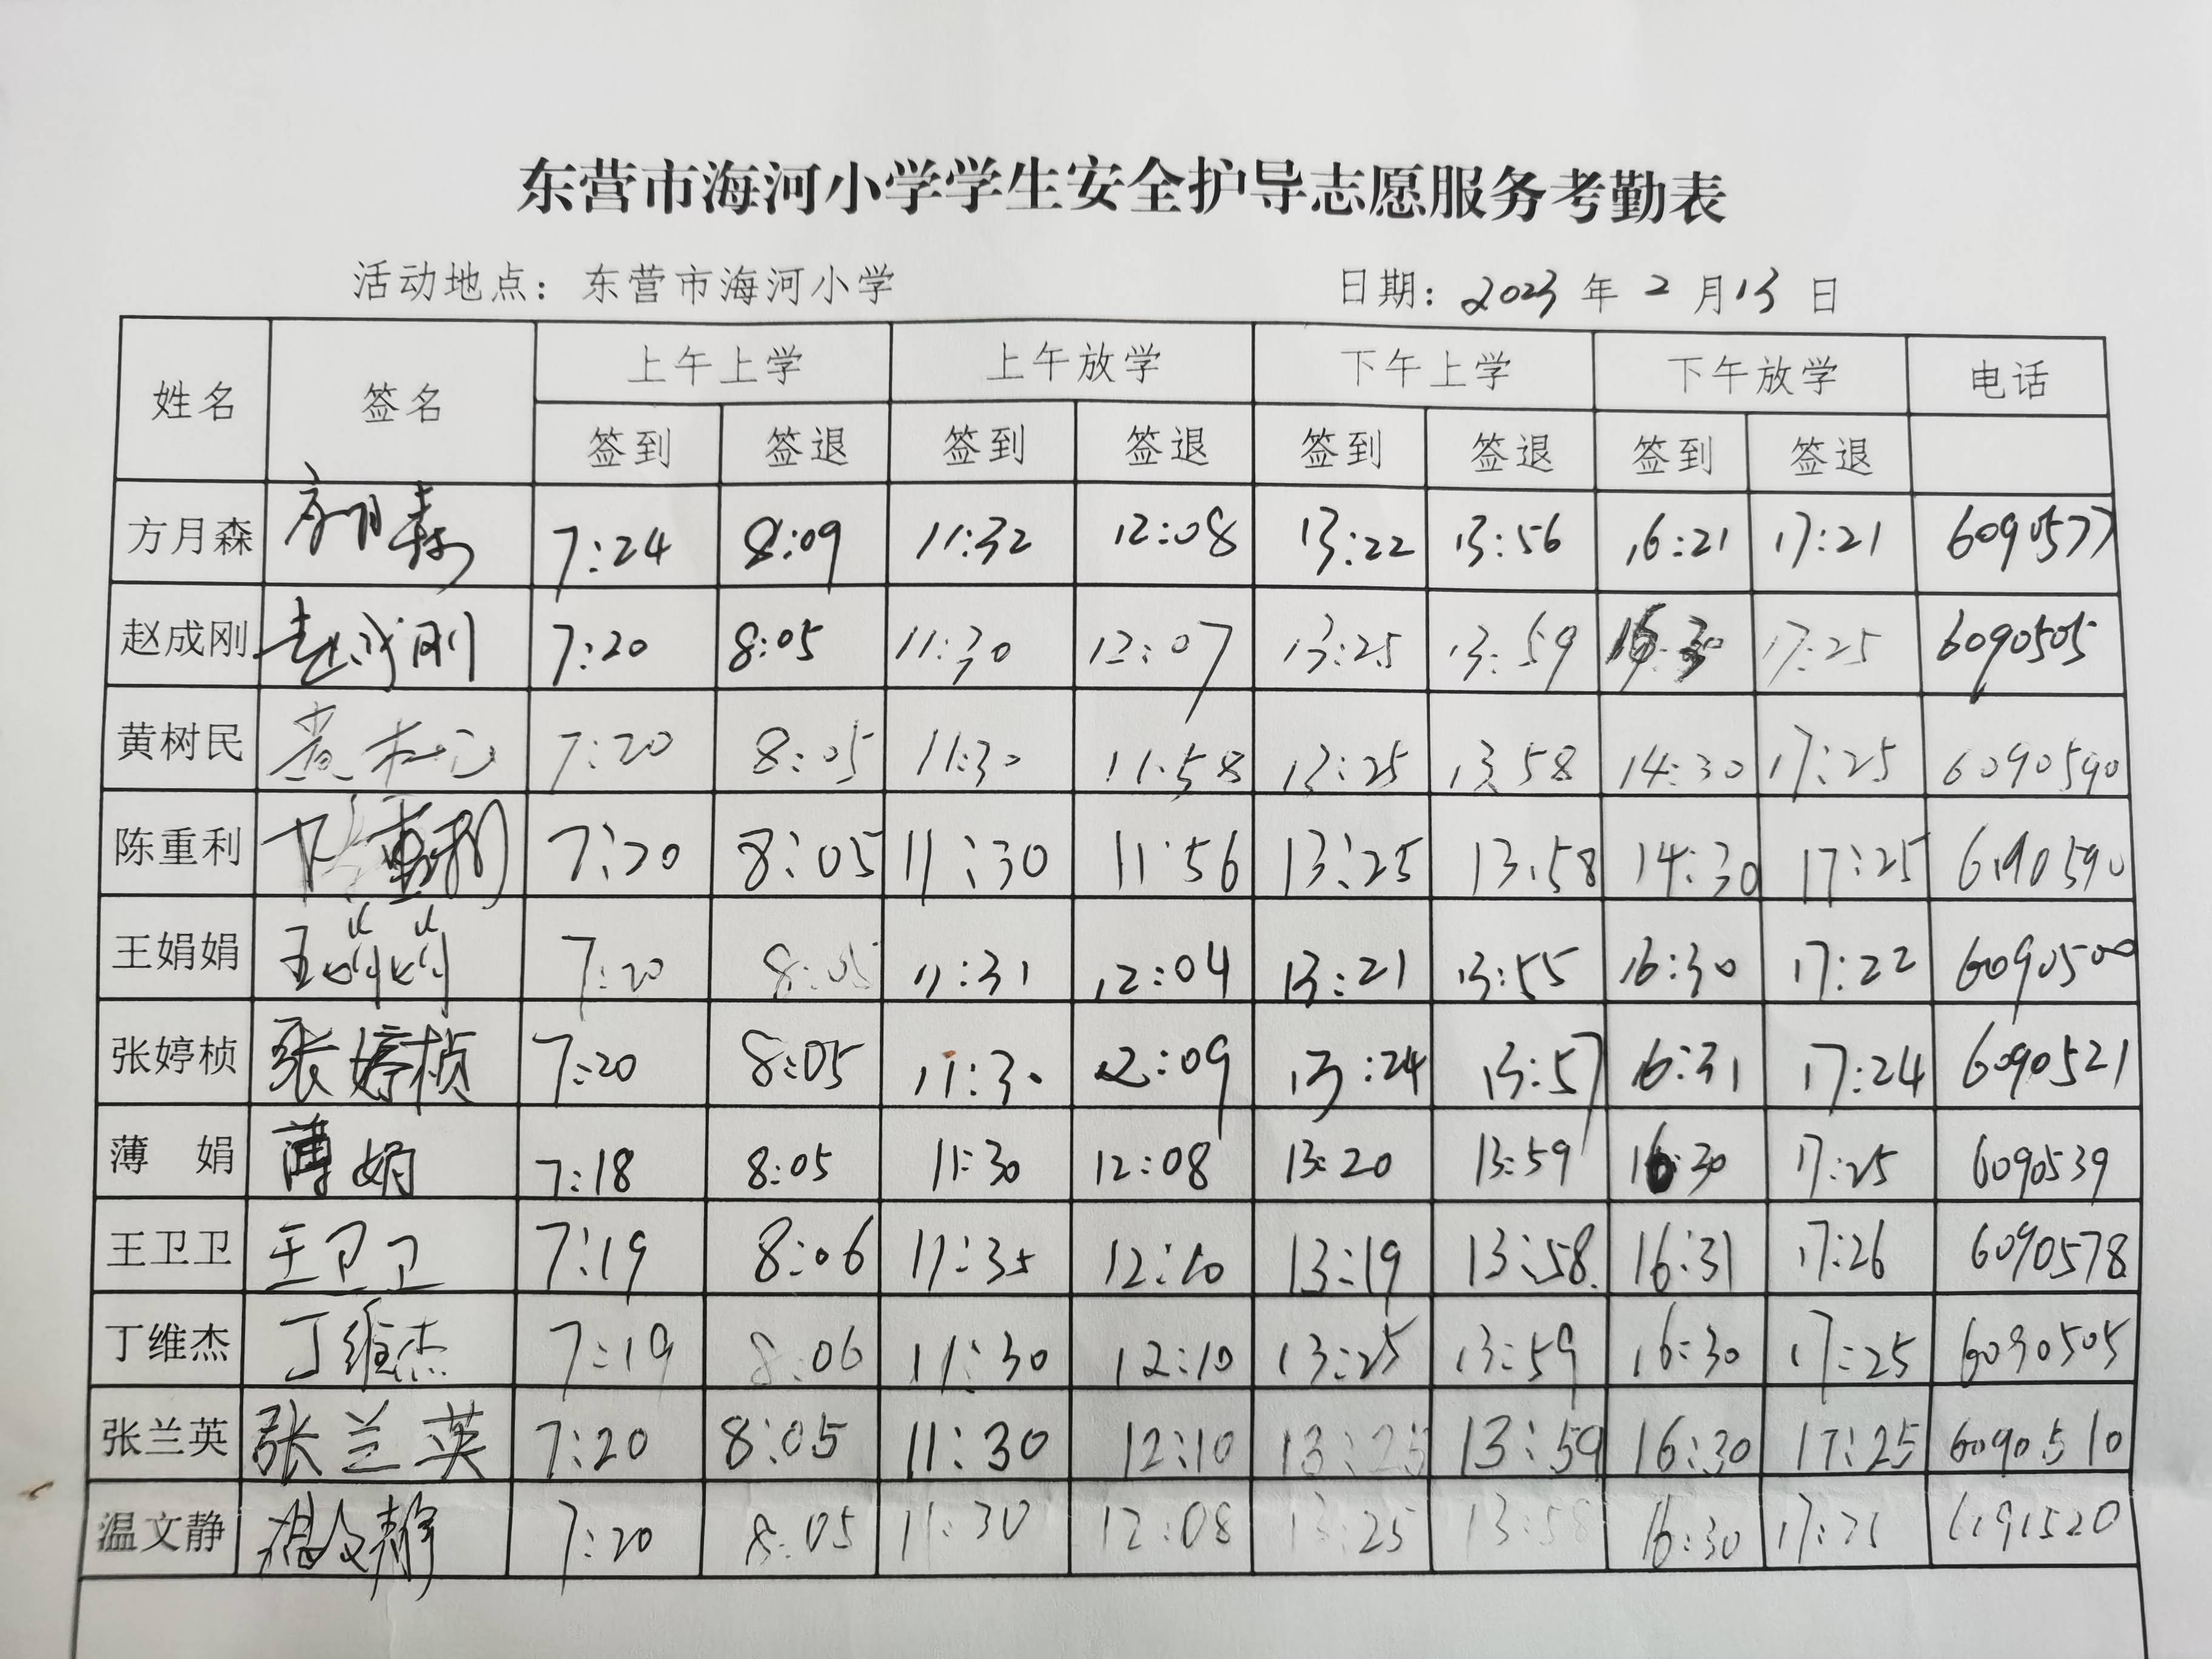 东营市海河小学学生安全护导志愿服务考勤表
活动地点：东营市海河小学 日期：2023年2月13日
姓名 签名 上午上学 上午放学 下午上学 下午放学 电话
签到 签退 签到 签退 签到 签退 签到 签退
方月森 方月森 7:24 8:09 11:32 12:08 13:22 13:56 16:21 17:21 6090577
赵成刚 赵成刚 7:20 8:05 11:30 12:07 13:25 13:59 16:30 17:25 6090505
黄树民 黄树民 7:20 8:05 11:30 11:58 13:25 13:58 14:30 17:25 6090590
陈重利 陈重利 7:20 8:05 11:30 11:56 13:25 13:58 14:30 17:25 6090590
王娟娟 王娟娟 7:20 8:05 11:31 12:04 13:21 13:55 16:30 17:22 6090500
张婷桢 张婷桢 7:20 8:05 11:30 12:09 13:24 13:57 16:31 17:24 6090521
薄 娟 薄娟 7:18 8:05 11:30 12:08 13:20 13:59 16:30 17:25 6090539
王卫卫 王卫卫 7:19 8:06 11:35 12:10 13:19 13:58 16:31 17:26 6090578
丁维杰 丁维杰 7:19 8:06 11:30 12:10 13:25 13:59 16:30 17:25 6090505
张兰英 张兰英 7:20 8:05 11:30 12:10 13:25 13:59 16:30 17:25 6090510
温文静 温文静 7:20 8:05 11:30 12:08 13:25 13:58 16:30